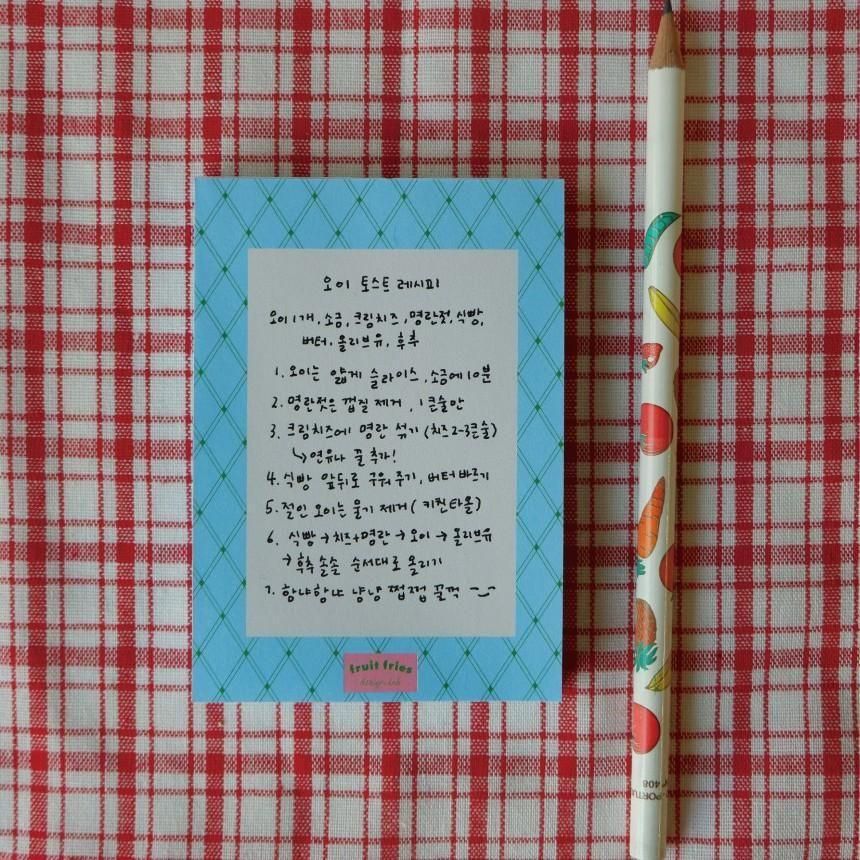 오이 토스트 레시피
오이 1개, 소금, 크림치즈, 명란젓, 식빵,
버터, 올리브유, 후추
1. 오이는 얇게 슬라이스, 소금에 10분
2. 명란젓은 껍질 제거, 1큰술만
3. 크림치즈에 명란 섞기 (치즈 2-3큰술)
↳연유나 꿀 추가!
4. 식빵 앞뒤로 구워주기, 버터 바르기
5. 절인 오이는 물기 제거 (키친타올)
6. 식빵 → 치즈+명란 → 오이 → 올리브유
→ 후추 솔솔 순서대로 올리기
7. 항냐항냐 냥냥 쩝쩝 꿀꺽
fruit fries
design lab
408